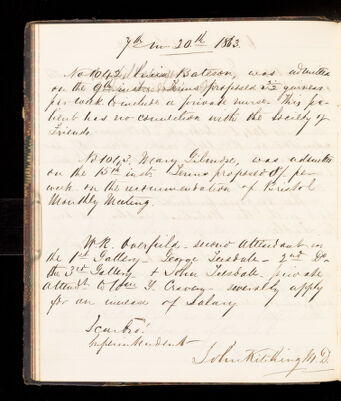 7th mo 20th 1863.
No 1042, Bateson, was admitted
on the 9th inst. Terms proposed 3½ guineas
per week to include a private nurse. This pa-
tient has no connection with the Society of
Friends.
No 1043, Mary Gilmore, was admitted
on the 15th inst. Terms proposed 8/ per
week on the recommendation of Bristol
Monthly Meeting.
W. R. Overfield - second Attendant in
the 1st Gallery - George Teasdale - 2nd Do
the 3rd Gallery & John Teasdale private
Attendt to Y. Craven - severally apply
for an increase of Salary
I am &c
Superintendent
John Kitching M.D.